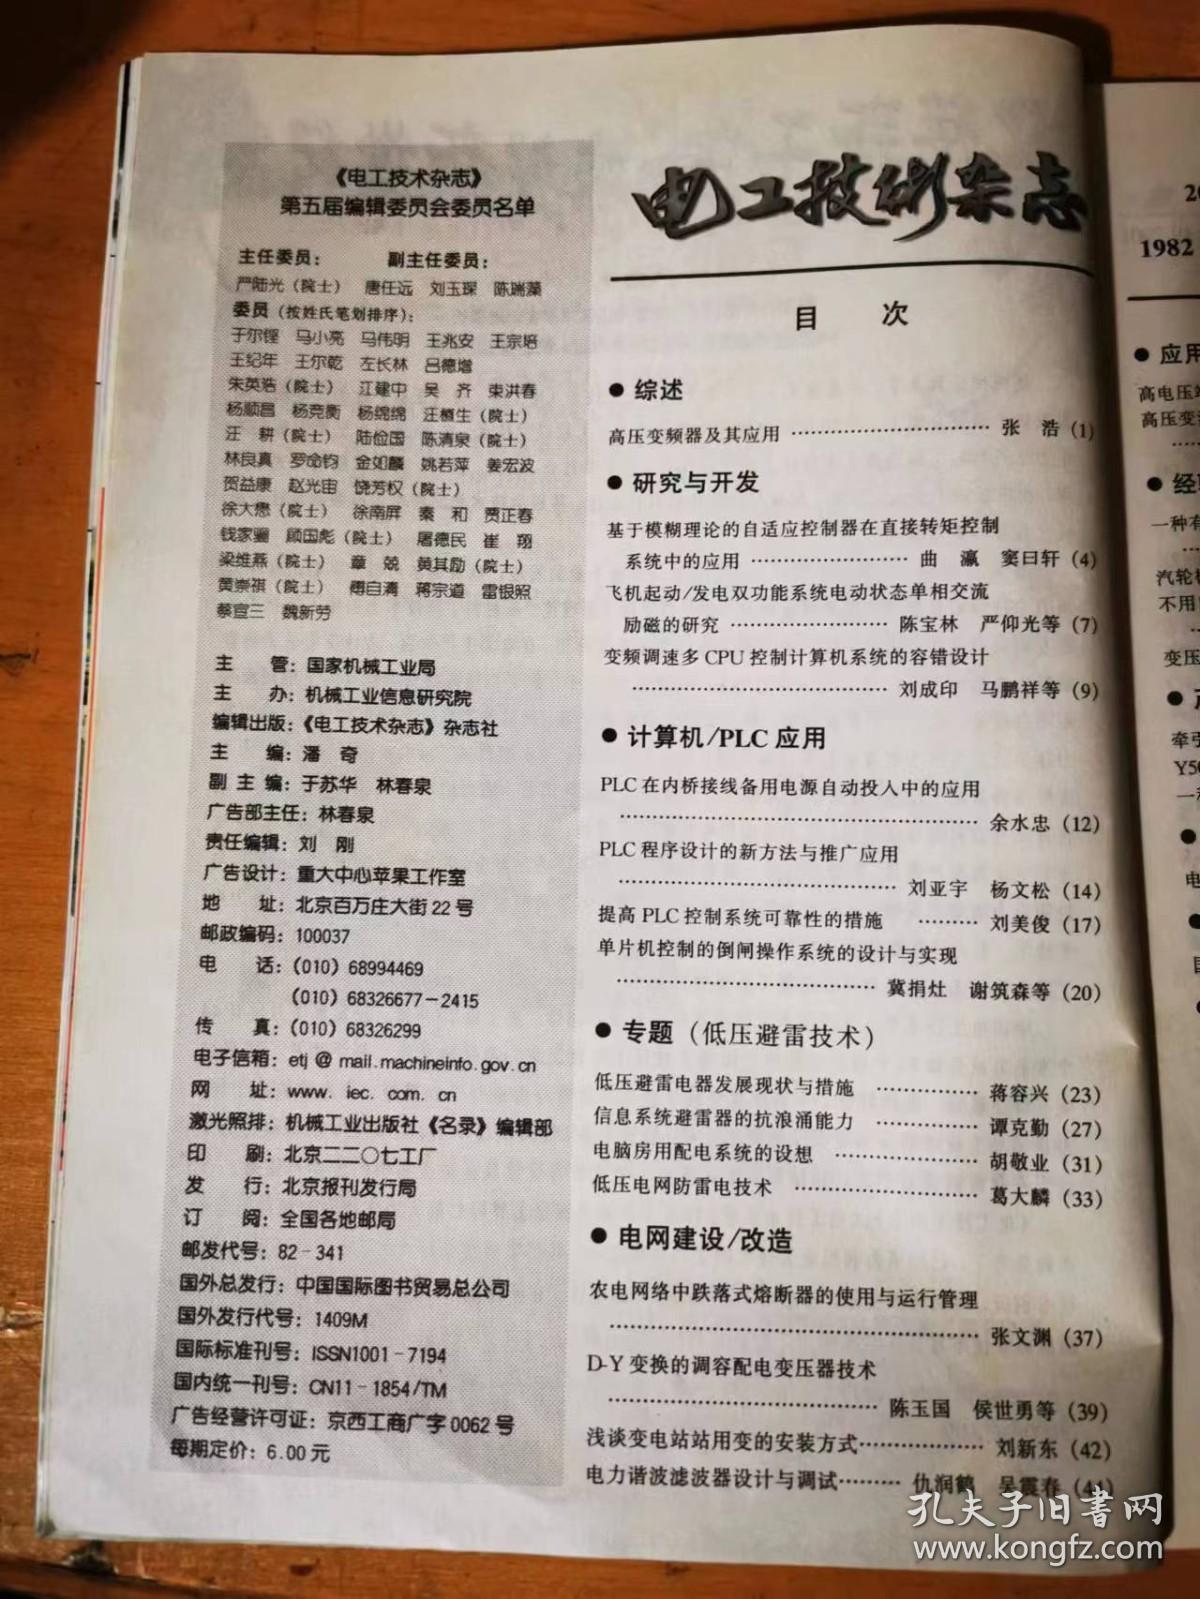 《电工技术杂志》
第五届编辑委员会委员名单
主任委员： 副主任委员：
严陆光（院士） 唐任远 刘玉琛 陈瑞藻
委员（按姓氏笔划排序）：
于尔铿 马小亮 马伟明 王兆安 王宗培
王纪年 王尔乾 左长林 吕德增
朱英浩（院士） 江建中 吴 齐 束洪春
杨顺昌 杨竞衡 杨绵绵 汪槱生（院士）
汪 耕（院士） 陆俭国 陈清泉（院士）
林良真 罗命钧 金如麟 姚若萍 姜宏波
贺益康 赵光宙 饶芳权（院士）
徐大懋（院士） 徐南屏 秦 和 贾正春
钱家骊 顾国彪（院士） 屠德民 崔 翔
梁维燕（院士） 章 兢 黄其励（院士）
黄崇祺（院士） 傅自清 蒋宗道 雷银照
蔡宣三 魏新劳
主 管：国家机械工业局
主 办：机械工业信息研究院
编辑出版：《电工技术杂志》杂志社
主 编：潘 奇
副 主 编：于苏华 林春泉
广告部主任：林春泉
责任编辑：刘 刚
广告设计：重大中心苹果工作室
地 址：北京百万庄大街22号
邮政编码：100037
电 话：（010）68994469
（010）68326677-2415
传 真：（010）68326299
电子信箱：etj @ mail.machineinfo.gov.cn
网 址：www. iec. com. cn
激光照排：机械工业出版社《名录》编辑部
印 刷：北京二二〇七工厂
发 行：北京报刊发行局
订 阅：全国各地邮局
邮发代号：82-341
国外总发行：中国国际图书贸易总公司
国外发行代号：1409M
国际标准刊号：ISSN1001-7194
国内统一刊号：CN11-1854/TM
广告经营许可证：京西工商广字0062号
每期定价：6.00元
电工技术杂志
目 次
● 综述
高压变频器及其应用 …………………………… 张 浩（1）
● 研究与开发
基于模糊理论的自适应控制器在直接转矩控制
系统中的应用 …………………… 曲 瀛 窦曰轩（4）
飞机起动/发电双功能系统电动状态单相交流
励磁的研究 …………………… 陈宝林 严仰光等（7）
变频调速多CPU控制计算机系统的容错设计
………………………………… 刘成印 马鹏祥等（9）
● 计算机/PLC应用
PLC在内桥接线备用电源自动投入中的应用
……………………………………………… 余水忠（12）
PLC程序设计的新方法与推广应用
…………………………………… 刘亚宇 杨文松（14）
提高PLC控制系统可靠性的措施 ……… 刘美俊（17）
单片机控制的倒闸操作系统的设计与实现
………………………………… 冀捐灶 谢筑森等（20）
● 专题（低压避雷技术）
低压避雷电器发展现状与措施 …………… 蒋容兴（23）
信息系统避雷器的抗浪涌能力 …………… 谭克勤（27）
电脑房用配电系统的设想 ………………… 胡敬业（31）
低压电网防雷电技术 ……………………… 葛大麟（33）
● 电网建设/改造
农电网络中跌落式熔断器的使用与运行管理
……………………………………………… 张文渊（37）
D-Y变换的调容配电变压器技术
………………………………… 陈玉国 侯世勇等（39）
浅谈变电站站用变的安装方式……………… 刘新东（42）
电力谐波滤波器设计与调试……… 仇润鹤 吴震春（44）
1982
● 应用
高电压
高压变
● 经
一种有
汽轮
不用
变压
牵引
Y50
一种
电
孔夫子旧书网
www.kongfz.com